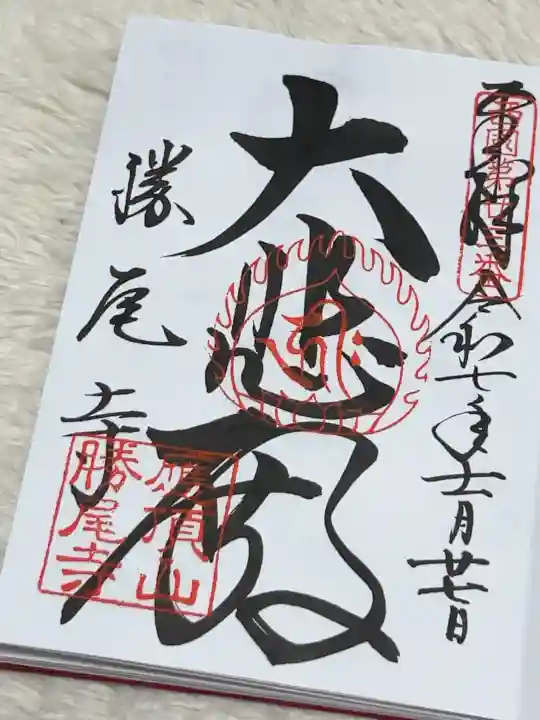 奉拝 令和七年十二月廿七日
西國第廿三番
大悲殿
勝尾寺
應頂山
勝尾寺